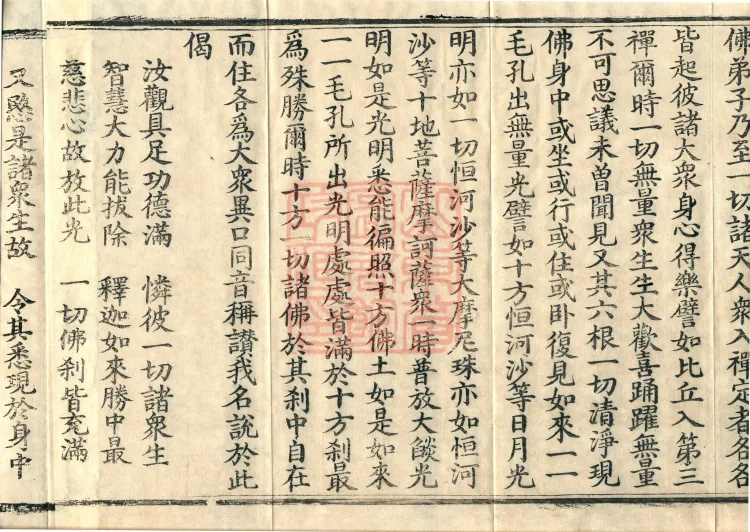 佛弟子乃至一切諸天人衆入禪定者各各
皆起彼諸大衆身心得樂譬如比丘入第三
禪爾時一切無量衆生生大歡喜踊躍無量
不可思議未曾聞見又其六根一切清淨現
佛身中或坐或行或住或卧復見如來一一
毛孔出無量光譬如十方恒河沙等日月光
明亦如一切恒河沙等大摩尼珠亦如恒河
沙等十地菩薩摩訶薩衆一時普放大燄光
明如是光明悉能徧照十方佛土如是如來
一一毛孔所出光明處處皆滿於十方刹最
爲殊勝爾時十方一切諸佛於其刹中自在
而住各爲大衆異口同音稱讃我名說於此
偈
汝觀具足功德滿 憐彼一切諸衆生
智慧大力能拔除 釋迦如來勝中最
慈悲心故放此光 一切佛刹皆充滿
又愍是諸衆生故 令其悉現於身中